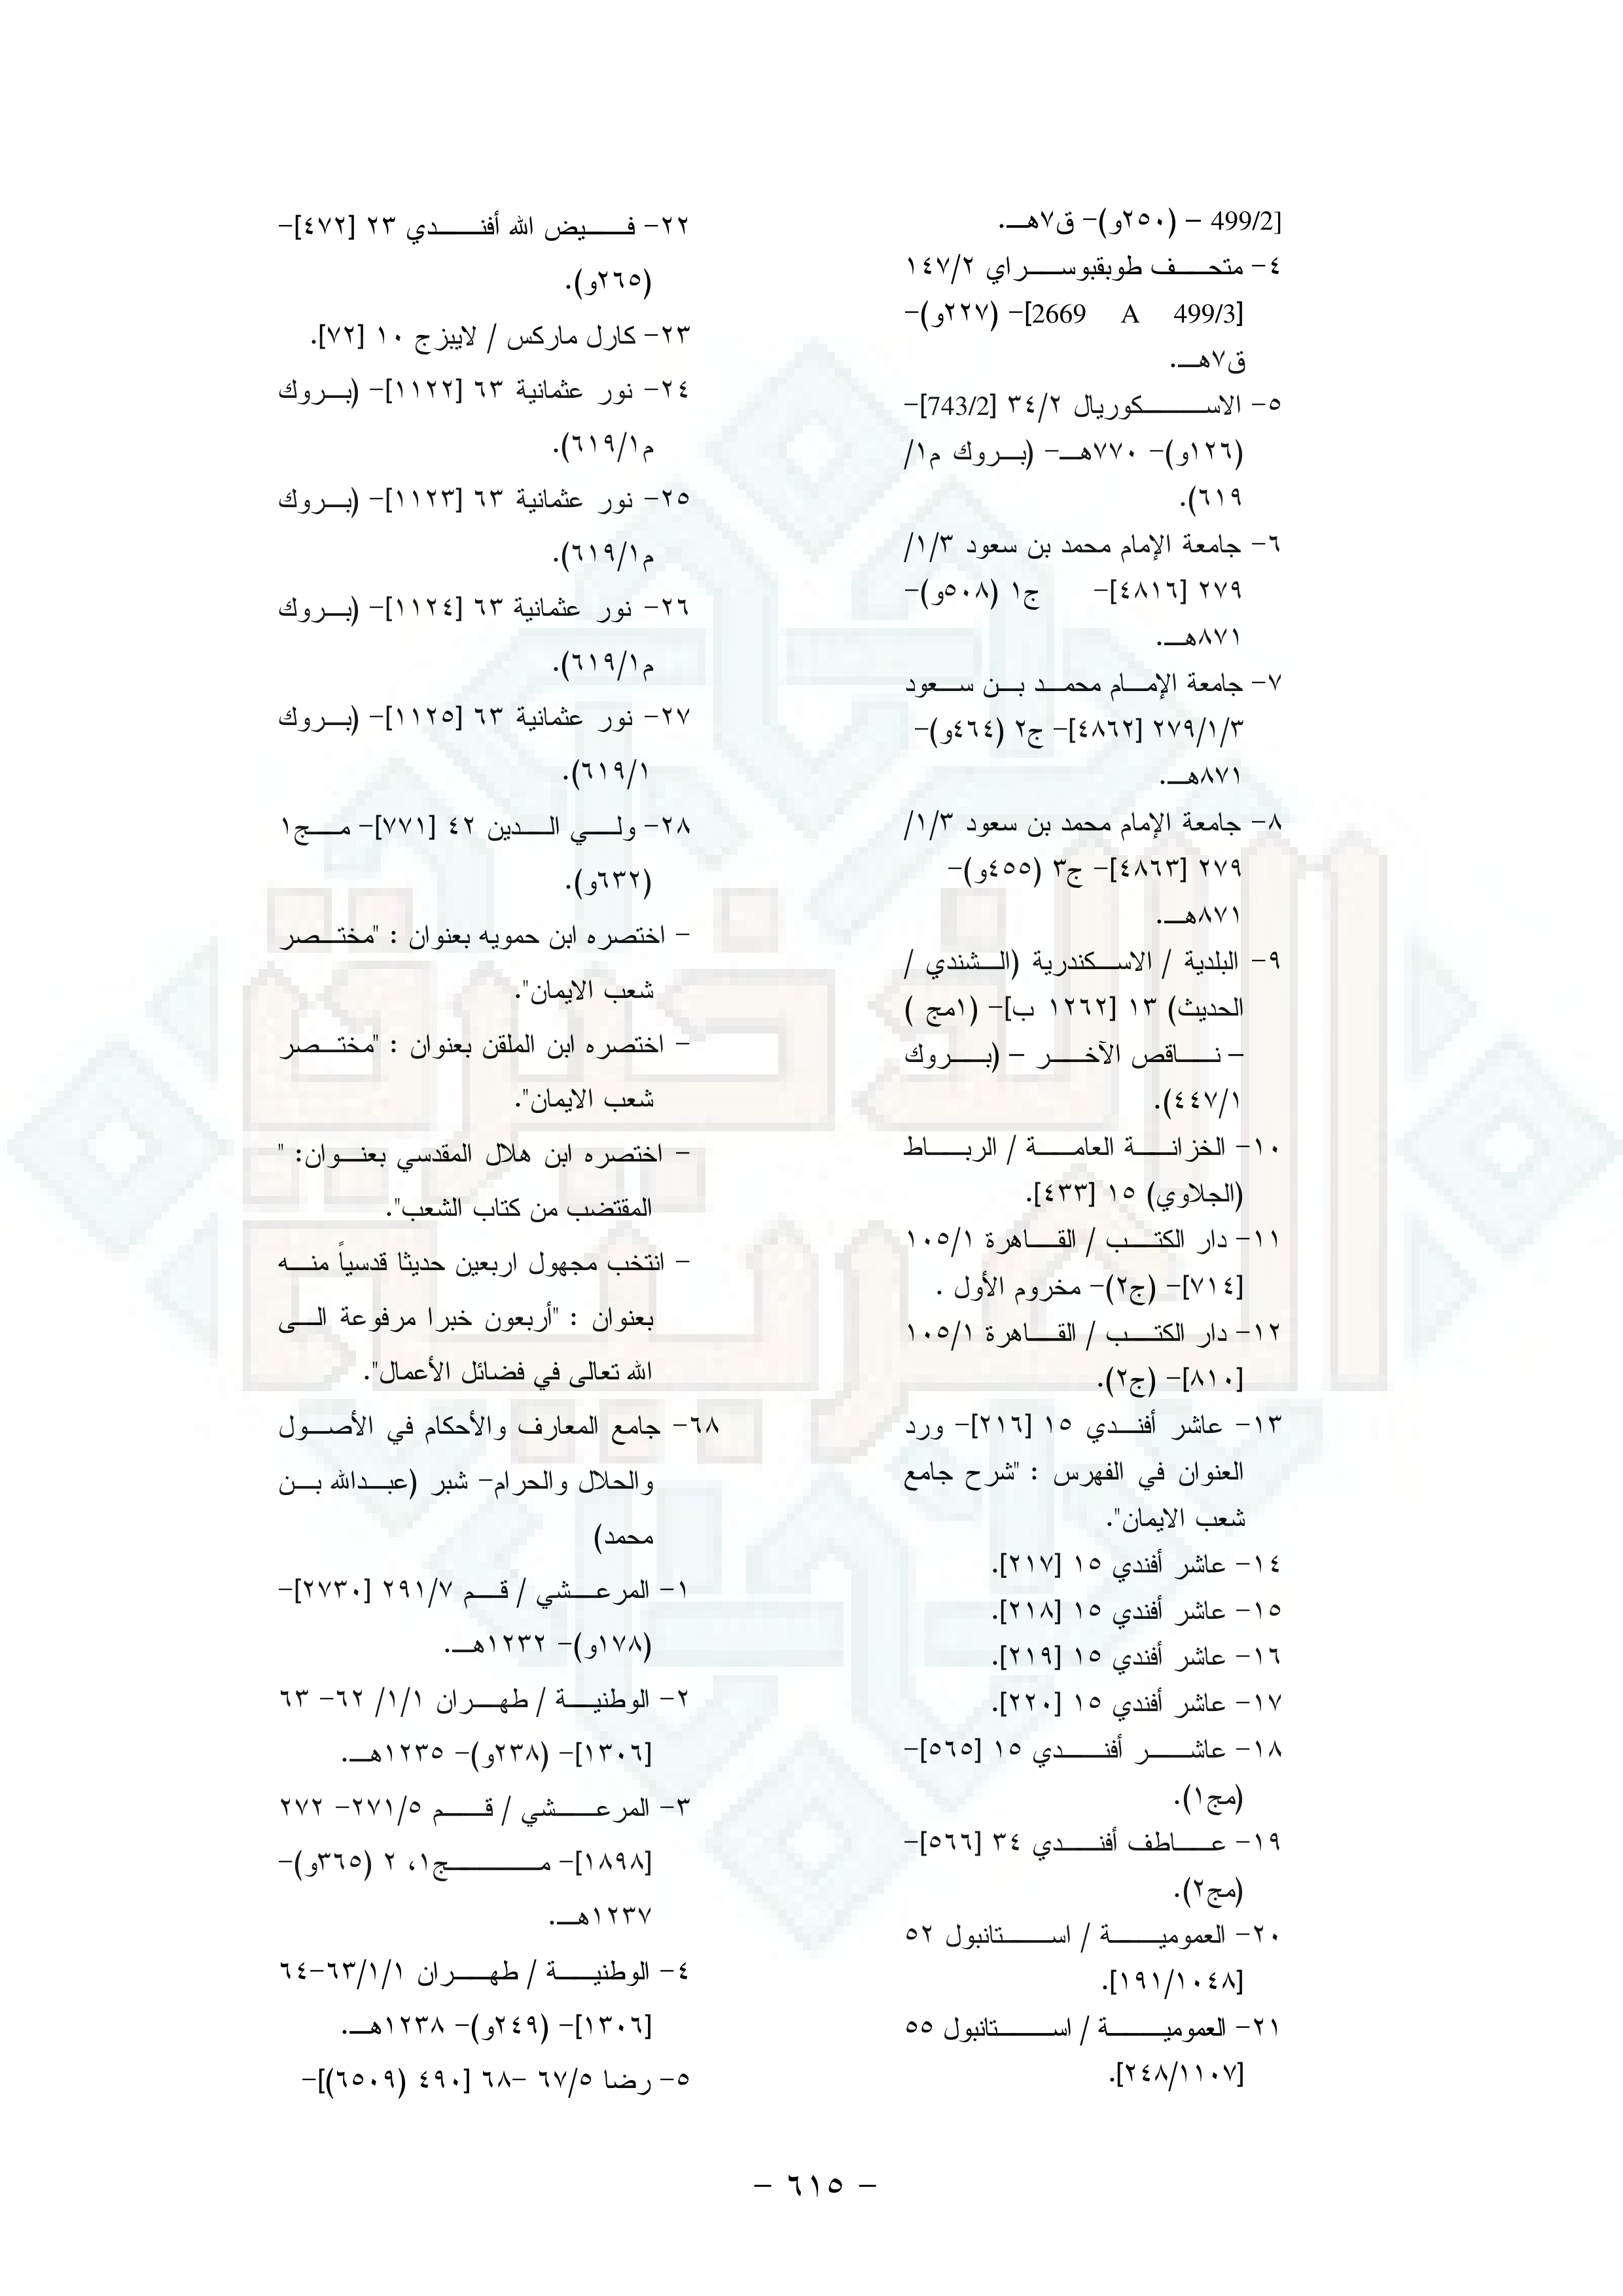 499/2] – (٢٥٠و)- ق٧هـ.
٤- متحف طوبقبوسراي ١٤٧/٢
[2669 A 499/3]- (٢٢٧و)-
ق٧هـ.
٥- الاسكوريال ٣٤/٢ [743/2]-
(١٢٦و)- ٧٧٠هـ- (بروك م١/
٦١٩).
٦- جامعة الإمام محمد بن سعود ١/٣/
٢٧٩ [٤٨١٦]- ج١ (٥٠٨و)-
٨٧١هـ.
٧- جامعة الإمام محمد بن سعود
٢٧٩/١/٣ [٤٨٦٢]- ج٢ (٤٦٤و)-
٨٧١هـ.
٨- جامعة الإمام محمد بن سعود ١/٣/
٢٧٩ [٤٨٦٣]- ج٣ (٤٥٥و)-
٨٧١هـ.
٩- البلدية / الاسكندرية (الشندي /
الحديث) ١٣ [١٢٦٢ ب]- (١مج )
– ناقص الآخر – (بروك
٤٤٧/١).
١٠- الخزانة العامة / الرباط
(الجلاوي) ١٥ [٤٣٣].
١١- دار الكتب / القاهرة ١٠٥/١
[٧١٤]- (ج٢)- مخروم الأول .
١٢- دار الكتب / القاهرة ١٠٥/١
[٨١٠]- (ج٢).
١٣- عاشر أفندي ١٥ [٢١٦]- ورد
العنوان في الفهرس : "شرح جامع
شعب الايمان".
١٤- عاشر أفندي ١٥ [٢١٧].
١٥- عاشر أفندي ١٥ [٢١٨].
١٦- عاشر أفندي ١٥ [٢١٩].
١٧- عاشر أفندي ١٥ [٢٢٠].
١٨- عاشر أفندي ١٥ [٥٦٥]-
(مج١).
١٩- عاطف أفندي ٣٤ [٥٦٦]-
(مج٢).
٢٠- العمومية / استانبول ٥٢
[١٩١/١٠٤٨].
٢١- العمومية / استانبول ٥٥
[٢٤٨/١١٠٧].
٢٢- فيض الله أفندي ٢٣ [٤٧٢]-
(٢٦٥و).
٢٣- كارل ماركس / لايبزج ١٠ [٧٢].
٢٤- نور عثمانية ٦٣ [١١٢٢]- (بروك
م٦١٩/١).
٢٥- نور عثمانية ٦٣ [١١٢٣]- (بروك
م٦١٩/١).
٢٦- نور عثمانية ٦٣ [١١٢٤]- (بروك
م٦١٩/١).
٢٧- نور عثمانية ٦٣ [١١٢٥]- (بروك
٦١٩/١).
٢٨- ولي الدين ٤٢ [٧٧١]- مج١
(٦٣٢و).
- اختصره ابن حمويه بعنوان : "مختصر
شعب الايمان".
- اختصره ابن الملقن بعنوان : "مختصر
شعب الايمان".
- اختصره ابن هلال المقدسي بعنوان: "
المقتضب من كتاب الشعب".
- انتخب مجهول اربعين حديثا قدسياً منه
بعنوان : "أربعون خبرا مرفوعة الى
الله تعالى في فضائل الأعمال".
٦٨- جامع المعارف والأحكام في الأصول
والحلال والحرام- شبر (عبدالله بن
محمد)
١- المرعشي / قم ٢٩١/٧ [٢٧٣٠]-
(١٧٨و)- ١٢٣٢هـ.
٢- الوطنية / طهران ١/١/ ٦٢- ٦٣
[١٣٠٦]- (٢٣٨و)- ١٢٣٥هـ.
٣- المرعشي / قم ٢٧١/٥- ٢٧٢
[١٨٩٨]- مج١، ٢ (٣٦٥و)-
١٢٣٧هـ.
٤- الوطنية / طهران ٦٣/١/١-٦٤
[١٣٠٦]- (٢٤٩و)- ١٢٣٨هـ.
٥- رضا ٦٧/٥ -٦٨ [٤٩٠ (٦٥٠٩)]-
- ٦١٥ -